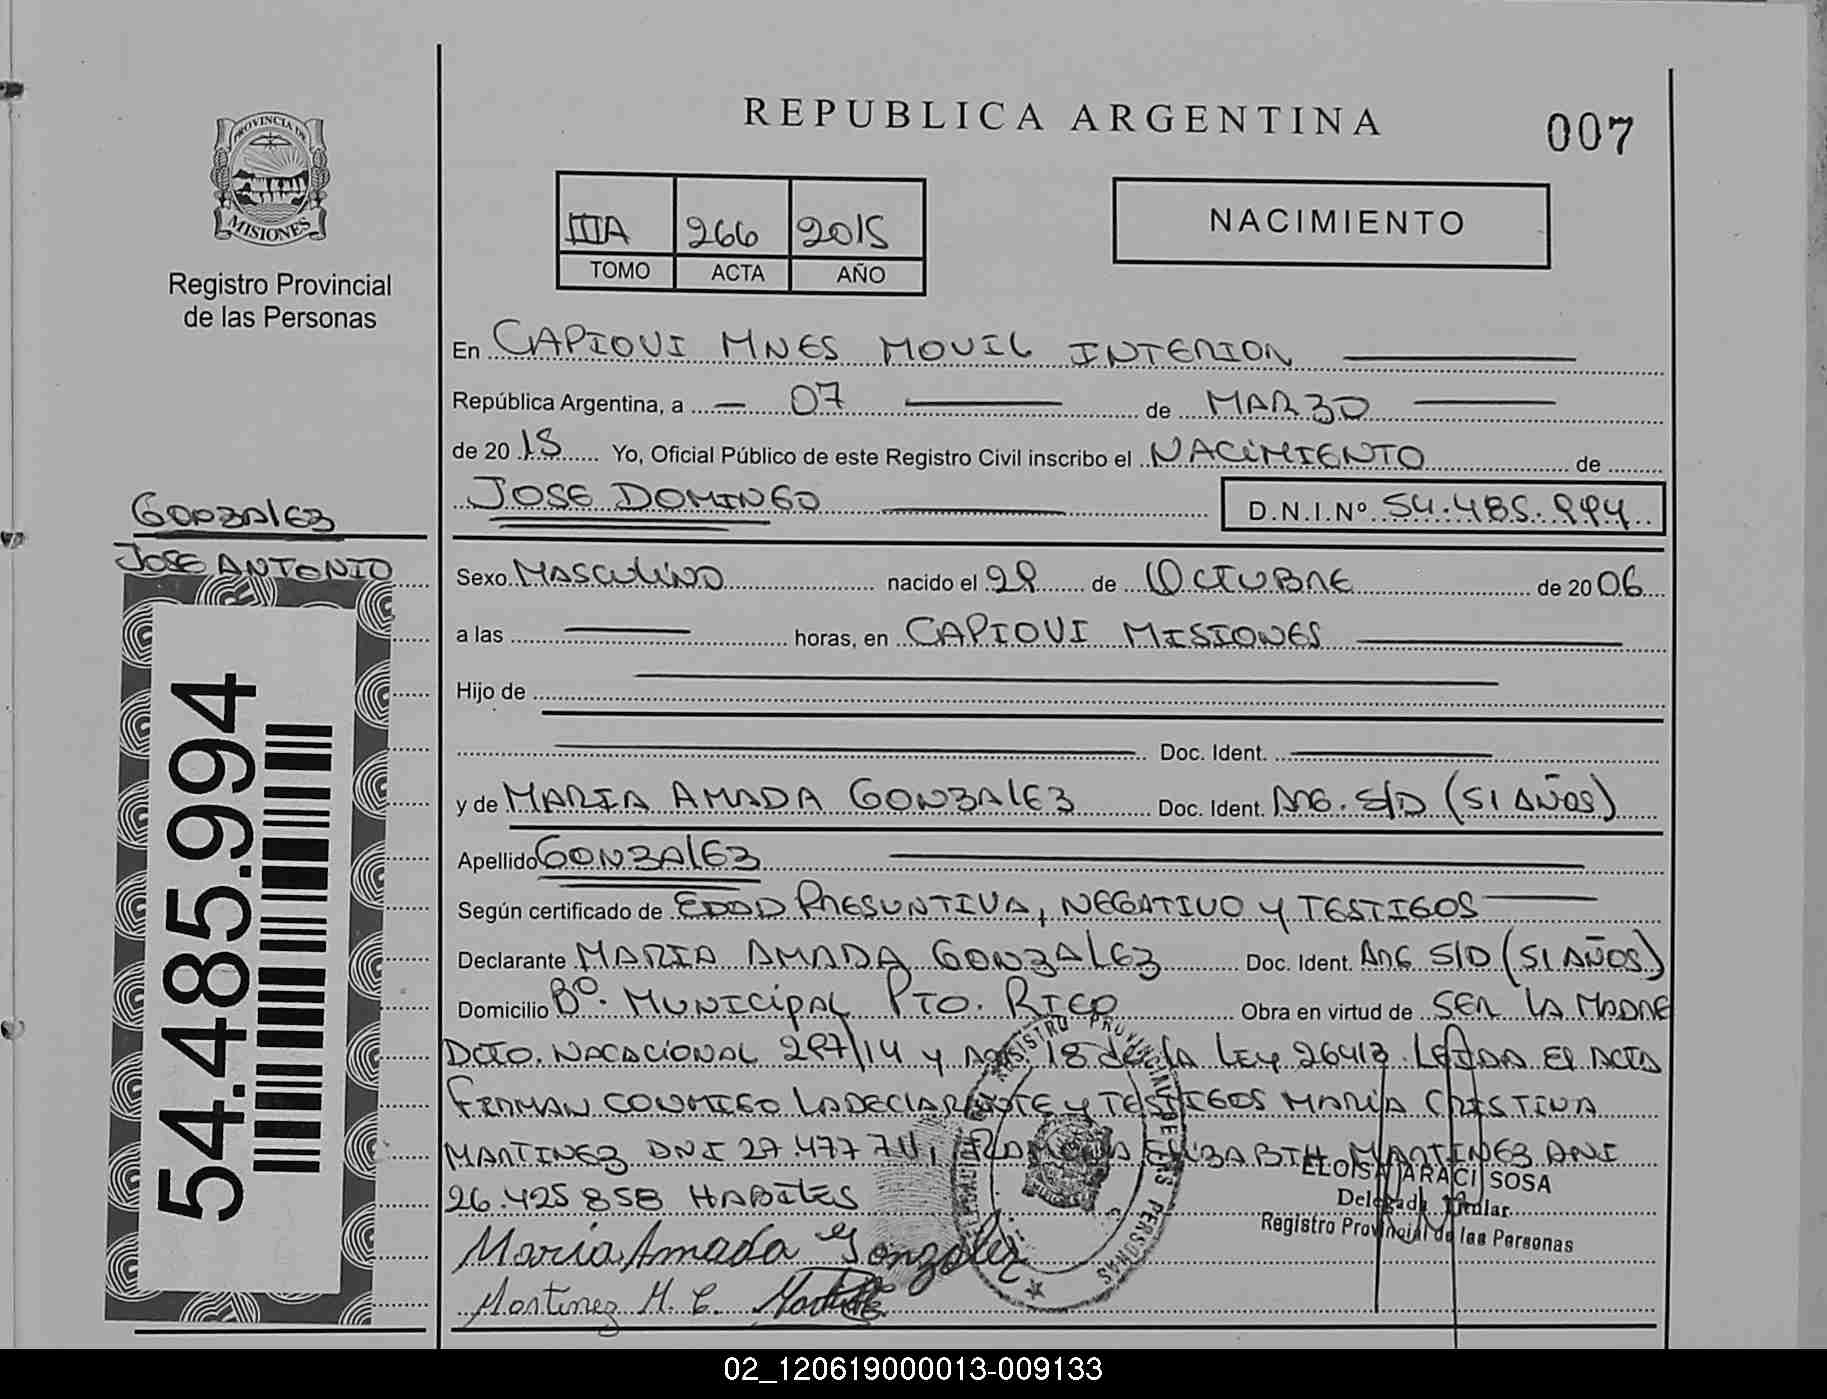 REPUBLICA ARGENTINA
007
PROVINCIA DE
MISIONES
Registro Provincial
de las Personas
IIIA 266 2015
TOMO ACTA AÑO
NACIMIENTO
En CAPIOVI MNES MOVIL INTERIOR
República Argentina, a 07 de MARZO
de 2015 Yo, Oficial Público de este Registro Civil inscribo el NACIMIENTO de
JOSE DOMINGO
D.N.I.Nº 54.485.994
GONZALEZ
JOSE ANTONIO
54.485.994
Sexo MASCULINO nacido el 29 de OCTUBRE de 2006
a las horas, en CAPIOVI MISIONES
Hijo de
Doc. Ident.
y de MARIA AMADA GONZALEZ Doc. Ident. ARG. S/D (51 AÑOS)
Apellido GONZALEZ
Según certificado de EDAD PRESUNTIVA, NEGATIVO Y TESTIGOS
Declarante MARIA AMADA GONZALEZ Doc. Ident. ARG S/D (51 AÑOS)
Domicilio Bº. MUNICIPAL PTO. RICO Obra en virtud de SER LA MADRE
DCTO. NACACIONAL 297/14 Y 18 de la LEY 26413. LEIDA EL ACTA
FIRMAN CONMIGO LA DECLARANTE Y TESTIGOS MARIA CRISTINA
MARTINEZ DNI MARTINEZ DNI
26.425 858 HABILES
REGISTRO PROVINCIAL DE LAS PERSONAS
ELOISA JARACI SOSA
Delegada Titular
Registro Provincial de las Personas
Maria Amada Gonzalez
Martinez M. C.
02_120619000013-009133